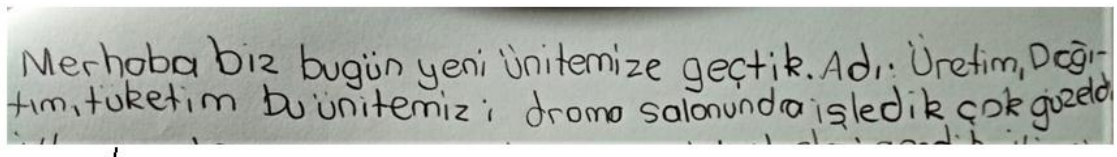 Merhaba biz bugün yeni ünitemize geçtik. Adı: Üretim, Dağı-
tım, tüketim bu ünitemizi drama salonunda işledik çok güzeld